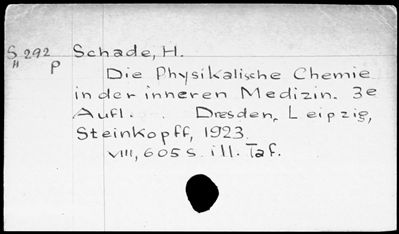 S 292 Schade, H.
" p
Die Physikalische Chemie
in der inneren Medizin. 3e
Aufl. . Dresden, Leipzig,
Steinkopff, 1923.
VIII, 605 S. ill. Taf.